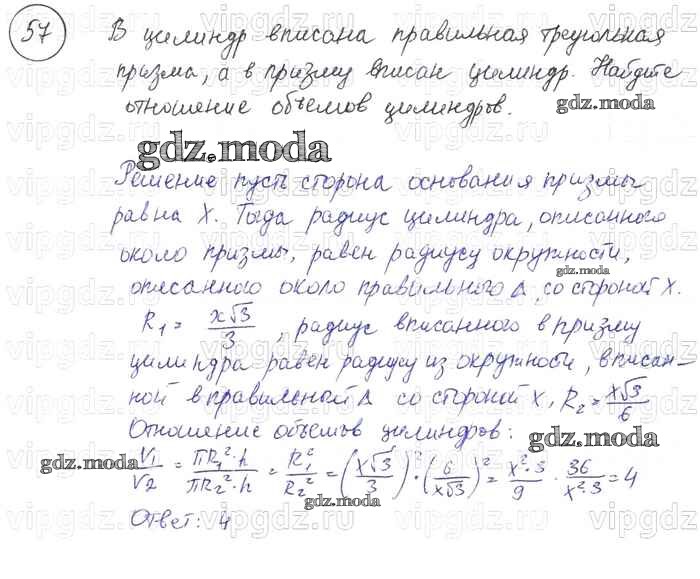 57 В цилиндр вписана правильная треугольная
призма, а в призму вписан цилиндр. Найдите
отношение объемов цилиндров.
gdz.moda
gdz.moda
Решение пусть сторона основания призмы
равна X. Тогда радиус цилиндра, описанного
около призмы, равен радиусу окружности,
gdz.moda
описанного около правильного Δ, со стороной X.
R₁ = x√3/3, радиус вписанного в призму
цилиндра равен радиусу из окружности, вписан-
ной в правильной Δ со стороной X, R₂ = x√3/6
Отношение объемов цилиндров:
gdz.moda
V₁/V₂ = πR₁²·h/πR₂²·h = R₁²/R₂² = (x√3/3)²·(6/x√3)² = x²·3/9 · 36/x²·3 = 4
gdz.moda
Ответ: 4
vipgdz